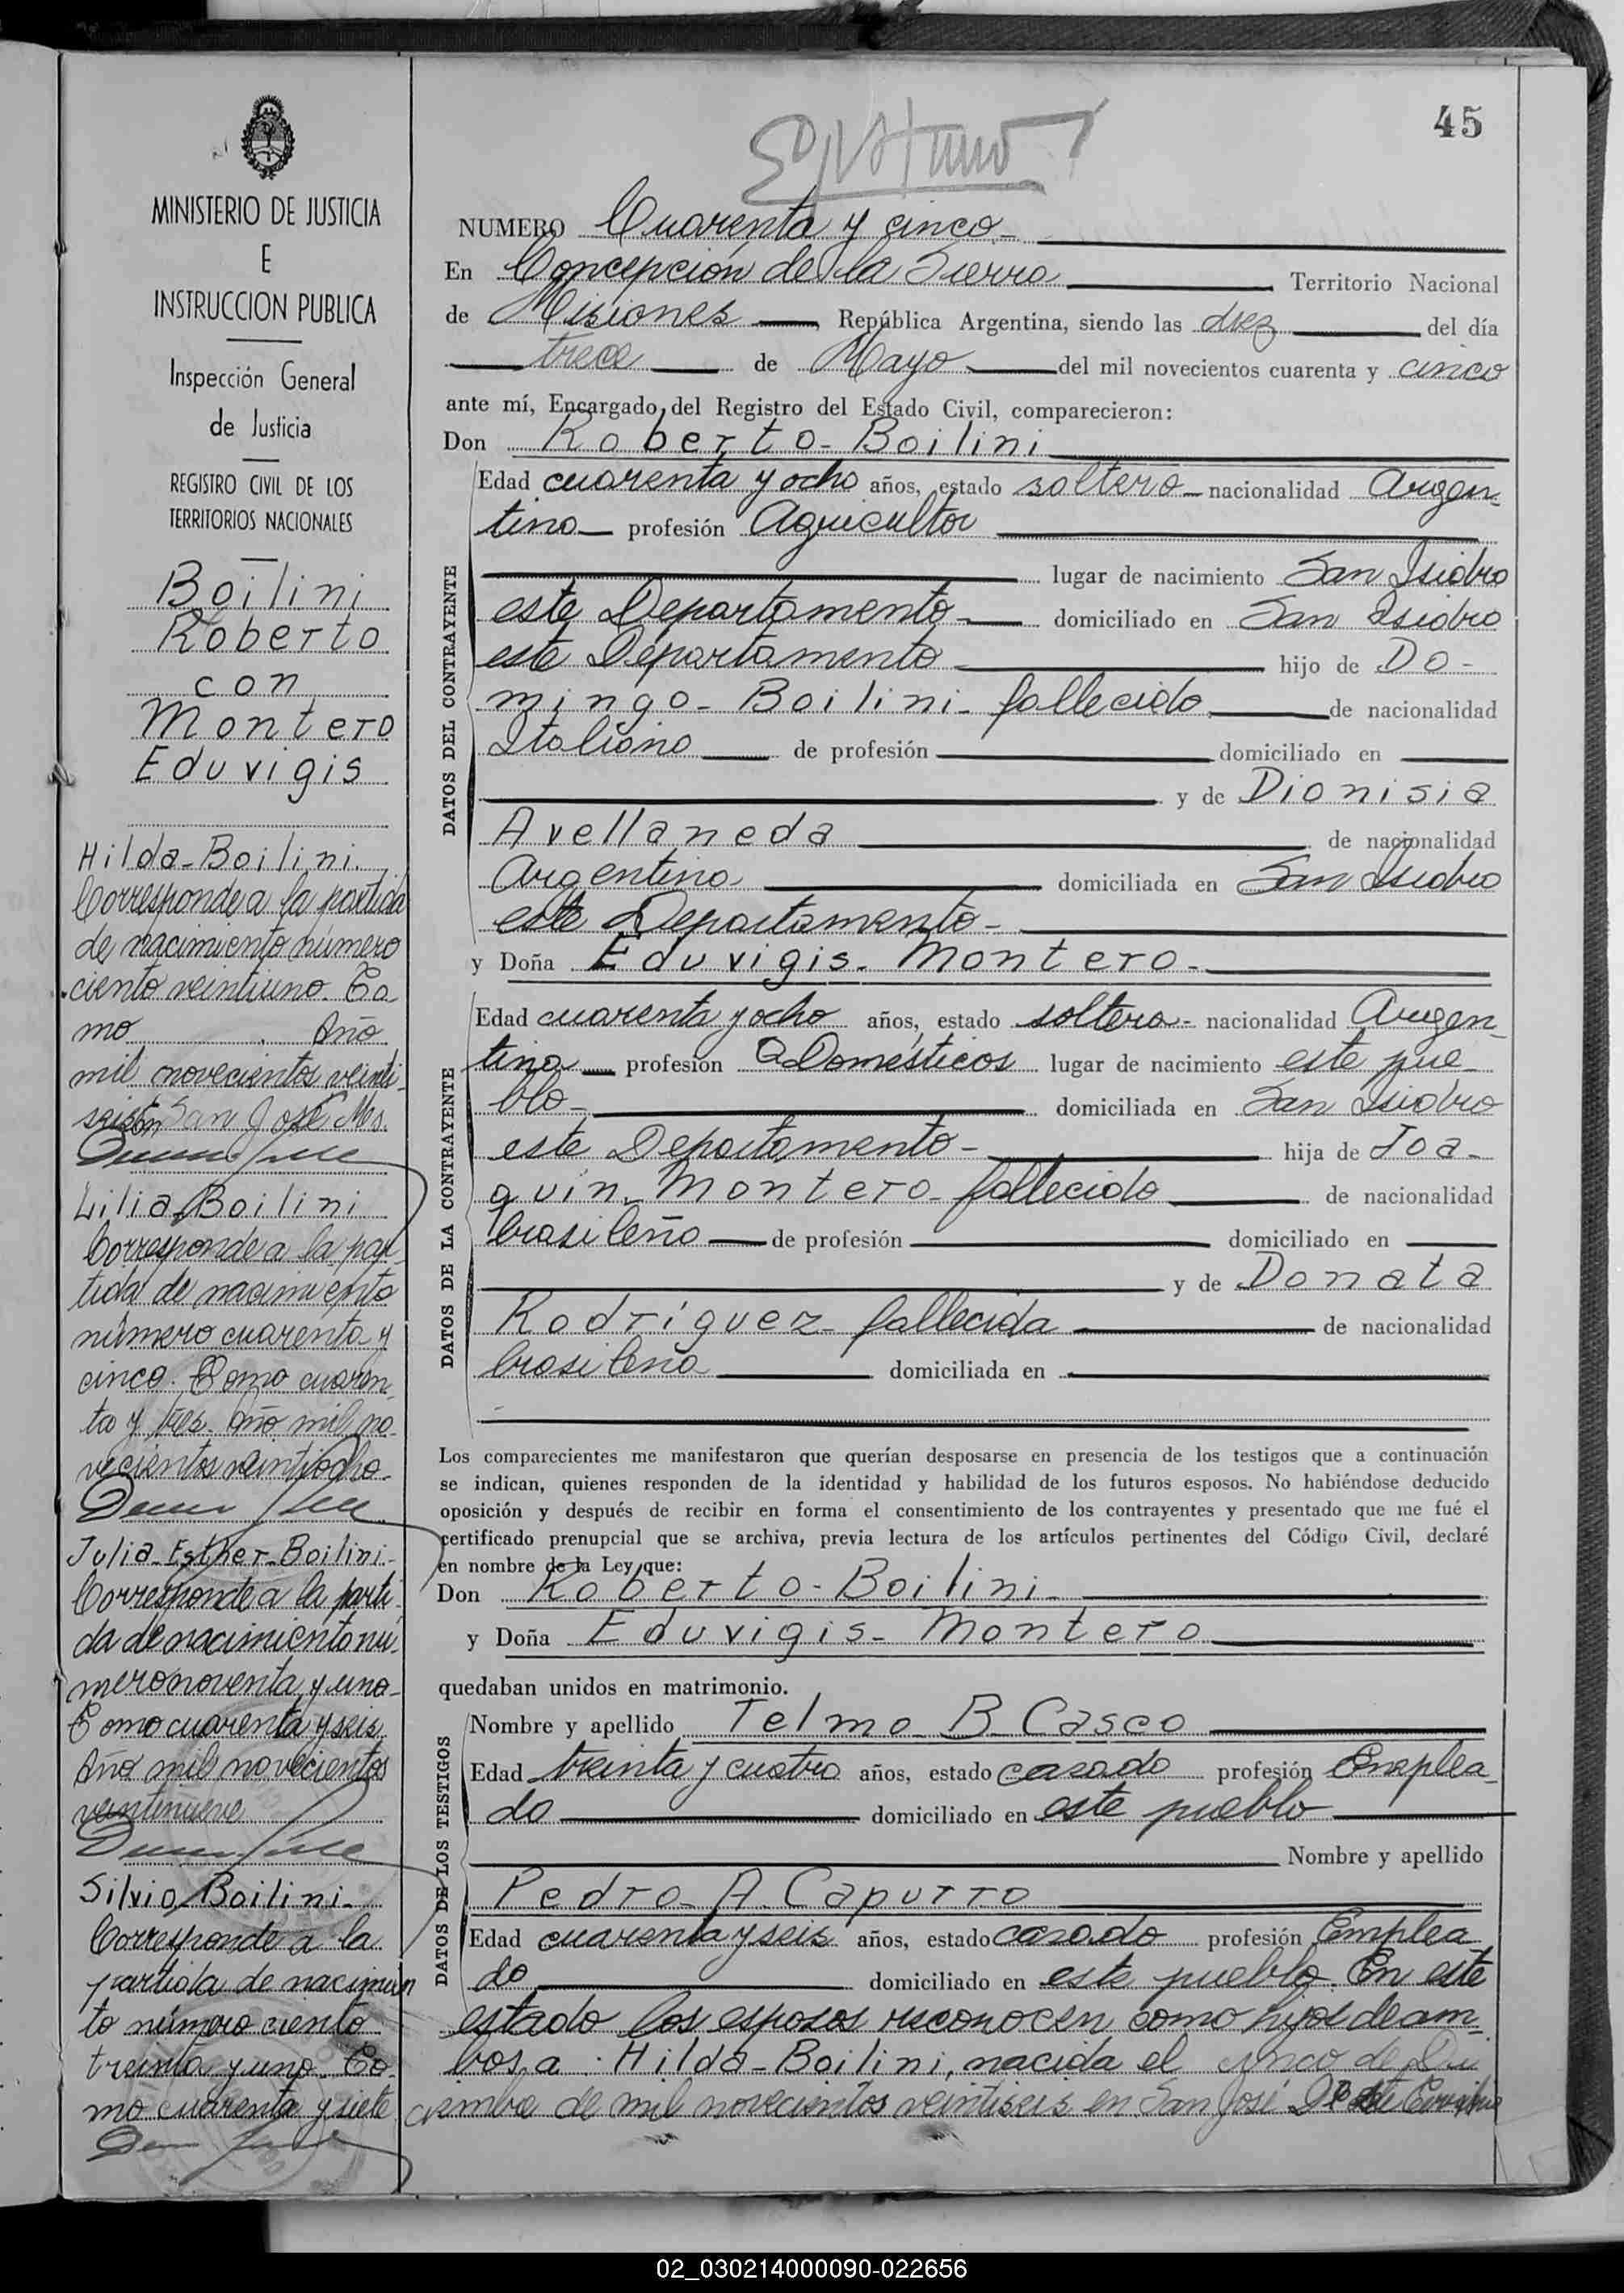 MINISTERIO DE JUSTICIA
E
INSTRUCCION PUBLICA
Inspección General
de Justicia
REGISTRO CIVIL DE LOS
TERRITORIOS NACIONALES
Boilini
Roberto
con
Montero
Eduvigis
Hilda-Boilini.
Corresponde a la partida
de nacimiento número
ciento veintiuno. To-
mo . Año
mil novecientos veinti-
seis en San José Ms.
Lilia Boilini
Corresponde a la par-
tida de nacimiento
número cuarenta y
cinco. Tomo cuaren-
ta y tres. Año mil no-
vecientos veintiocho.
Julia-Esther-Boilini-
Corresponde a la parti-
da de nacimiento nú-
mero noventa y uno-
Tomo cuarenta y seis
Año mil novecientos
veintinueve
Silvio Boilini-
Corresponde a la
partida de nacimien
to número ciento
treinta y uno. To-
mo cuarenta y siete
45
NUMERO Cuarenta y cinco-
En Concepción de la Sierra Territorio Nacional
de Misiones República Argentina, siendo las diez del día
trece de Mayo del mil novecientos cuarenta y cinco
ante mí, Encargado del Registro del Estado Civil, comparecieron:
Don Roberto-Boilini
DATOS DEL CONTRAYENTE
Edad cuarenta y ocho años, estado soltero- nacionalidad Argen-
tino profesión Agricultor
lugar de nacimiento San Isidro
este Departamento- domiciliado en San Isidro
este Departamento hijo de Do-
mingo-Boilini-fallecido de nacionalidad
Italiano de profesión domiciliado en
y de Dionisia
Avellaneda de nacionalidad
Argentina domiciliada en San Isidro
este Departamento-
y Doña Eduvigis-Montero-
DATOS DE LA CONTRAYENTE
Edad cuarenta y ocho años, estado soltera- nacionalidad Argen-
tina profesión Q Domésticos lugar de nacimiento este pue-
blo- domiciliada en San Isidro
este Departamento- hija de Joa-
quin-Montero-fallecido de nacionalidad
brasileño de profesión domiciliado en
y de Donata
Rodríguez-fallecida de nacionalidad
brasileña domiciliada en
Los comparecientes me manifestaron que querían desposarse en presencia de los testigos que a continuación
se indican, quienes responden de la identidad y habilidad de los futuros esposos. No habiéndose deducido
oposición y después de recibir en forma el consentimiento de los contrayentes y presentado que me fué el
certificado prenupcial que se archiva, previa lectura de los artículos pertinentes del Código Civil, declaré
en nombre de la Ley que:
Don Roberto-Boilini-
y Doña Eduvigis-Montero
quedaban unidos en matrimonio.
DATOS DE LOS TESTIGOS
Nombre y apellido Telmo B. Casco
Edad treinta y cuatro años, estado casado profesión Emplea-
do domiciliado en este pueblo
Nombre y apellido
Pedro-A. Capurro
Edad cuarenta y seis años, estado casado profesión Emplea
do domiciliado en este pueblo. En este
estado los esposos reconocen como hijos de am-
bos a: Hilda-Boilini, nacida el cinco de Di
ciembre de mil novecientos veintiseis en San José
02_030214000090-022656